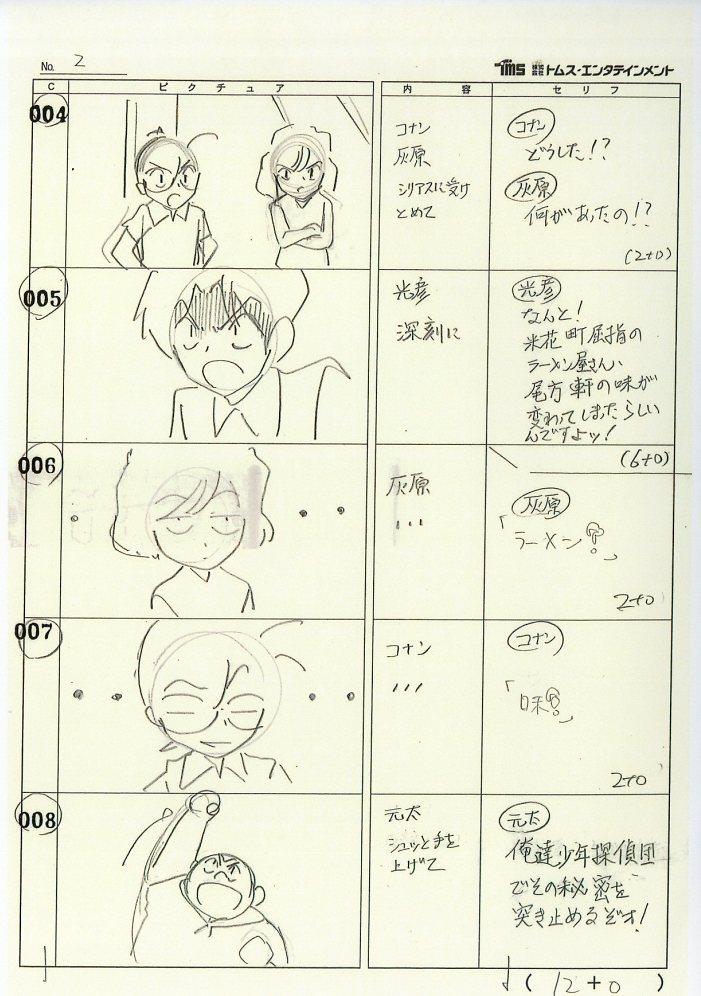 No. 2
TMS 株式会社 トムス・エンタテインメント
C ピクチュア 内容 セリフ
004
コナン
灰原
シリアスに受け
とめて
コナン
どうした!?
灰原
何があったの!?
(2+0)
005
光彦
深刻に
光彦
なんと!
米花町屈指の
ラーメン屋さん、
尾方軒の味が
変わってしまったらしい
んですよッ!
(6+0)
006
灰原
、、、
灰原
「ラーメン?」
2+0
007
コナン
、、、
コナン
「味?」
2+0
008
元太
シュッと手を
上げて
元太
俺達少年探偵団
でその秘密を
突き止めるぞォ!
(12+0)